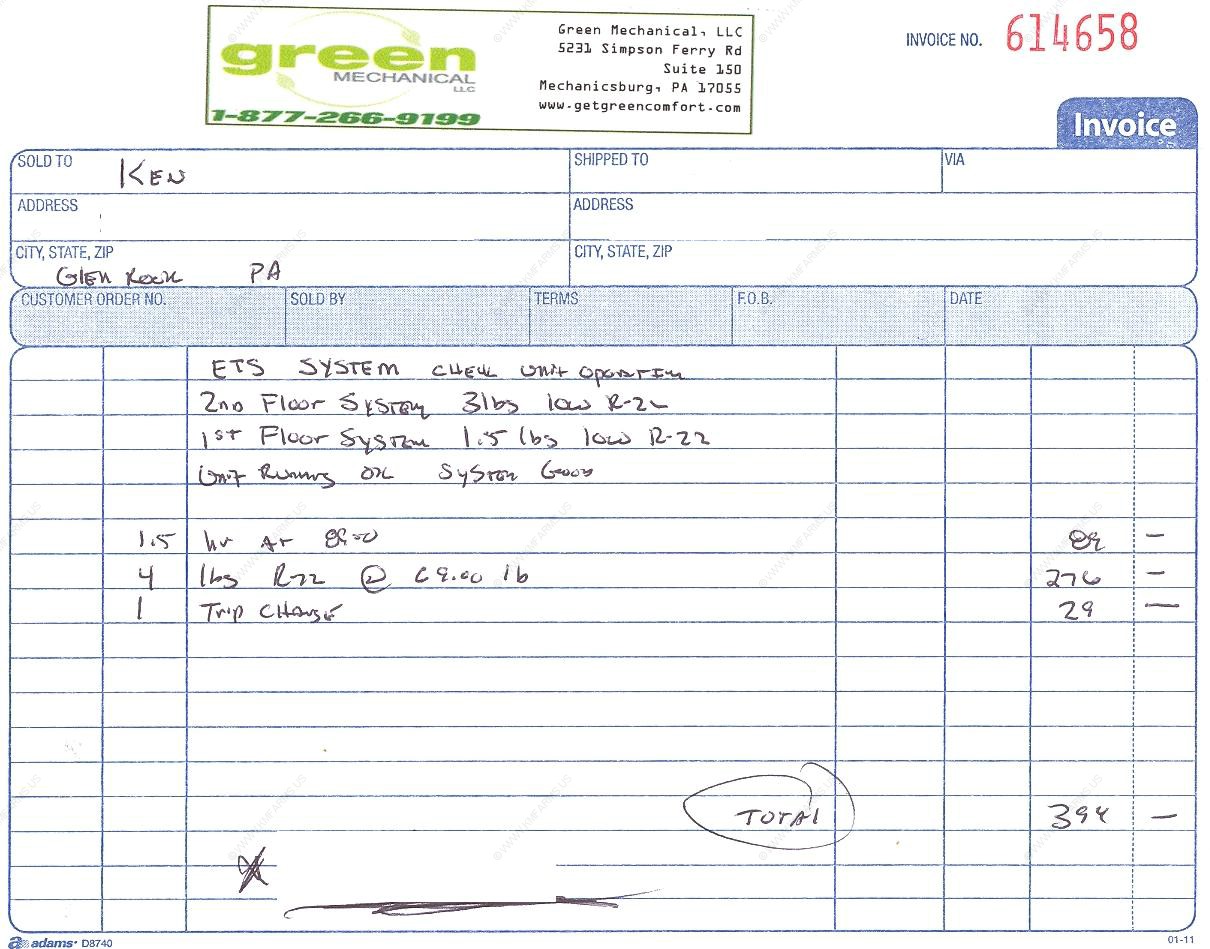 green
MECHANICAL
LLC
1-877-266-9199
Green Mechanical, LLC
5231 Simpson Ferry Rd
Suite 150
Mechanicsburg, PA 17055
www.getgreencomfort.com
INVOICE NO. 614658
Invoice
SOLD TO Ken
SHIPPED TO
VIA
ADDRESS
ADDRESS
CITY, STATE, ZIP
Glen Rock PA
CITY, STATE, ZIP
CUSTOMER ORDER NO. SOLD BY TERMS F.O.B. DATE
ETS SYSTEM CHECK UNIT OPERATION
2nd Floor System 3lbs low R-22
1st Floor System 1.5 lbs low R-22
Unit Running OK System Good
1.5 hr AT 89.00 89 —
4 lbs R-22 @ 69.00 lb 276 —
1 Trip Charge 29 —
TOTAL 394 —
adams D8740
01-11
©WWW.HMFARMS.US